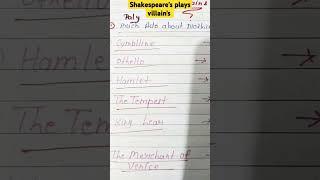 Shakespeare's plays
villain's
Play
Much Ado about Nothing
Cymbline
Othello
Hamlet
The Tempest
King Lear
The Merchant of
Venice